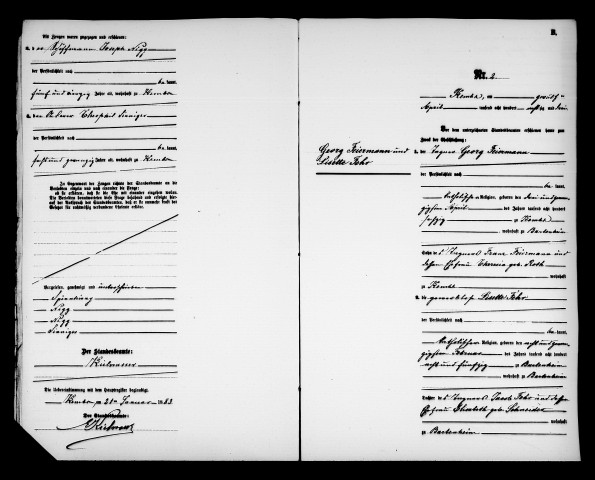 Als Zeugen waren zugezogen und erschienen:
3. der Schiffmann Joseph Nigg
der Persönlichkeit nach
be kannt,
fünf und vierzig Jahre alt, wohnhaft zu Kembs
4. der Ackerer Theophil
der Persönlichkeit nach
be kannt,
sechs und zwanzig Jahre alt, wohnhaft zu Kembs
In Gegenwart der Zeugen richtete der Standesbeamte an die
Verlobten einzeln und nach einander die Frage:
ob sie erklären, daß sie die Ehe mit einander eingehen wollen.
Die Verlobten beantworteten diese Frage bejahend und erfolgte hier-
auf der Ausspruch des Standesbeamten, daß er sie nunmehr kraft des
Gesetzes für rechtmäßig verbundene Eheleute erkläre.
Vorgelesen, genehmigt und unterschrieben
Nigg
Nigg
Der Standesbeamte:
Die Uebereinstimmung mit dem Hauptregister beglaubigt
Kembs, am 21ten Januar 1883
Der Standesbeamte:
B.
Nr. 2
Kembs, am
April tausend acht hundert
Vor dem unterzeichneten Standesbeamten erschienen heute zum
Zweck der Eheschließung:
Georg Feirmann und
Lisette Fehr
1. der Tagner Georg Feirmann
der Persönlichkeit nach
be kannt,
katholischer Religion, geboren den
zigsten April des Jahres tausend acht hundert
fufzig zu Kembs
wohnhaft zu Bartenheim
Sohn des Tagners Franz Feirmann und
dessen Ehefrau Theresia geb. Roth
wohnhaft
zu Kembs
2. die gewerblose Lisette Fehr
der Persönlichkeit nach
be kannt,
katholischer Religion, geboren den acht und zwan-
zigsten Februar des Jahres tausend acht hundert
acht und fünfzig zu Bartenheim
wohnhaft zu Bartenheim
Tochter des Tagners Jacob Fehr und dessen
Ehefrau Elisabeth geb. Schneider
wohnhaft
zu Bartenheim